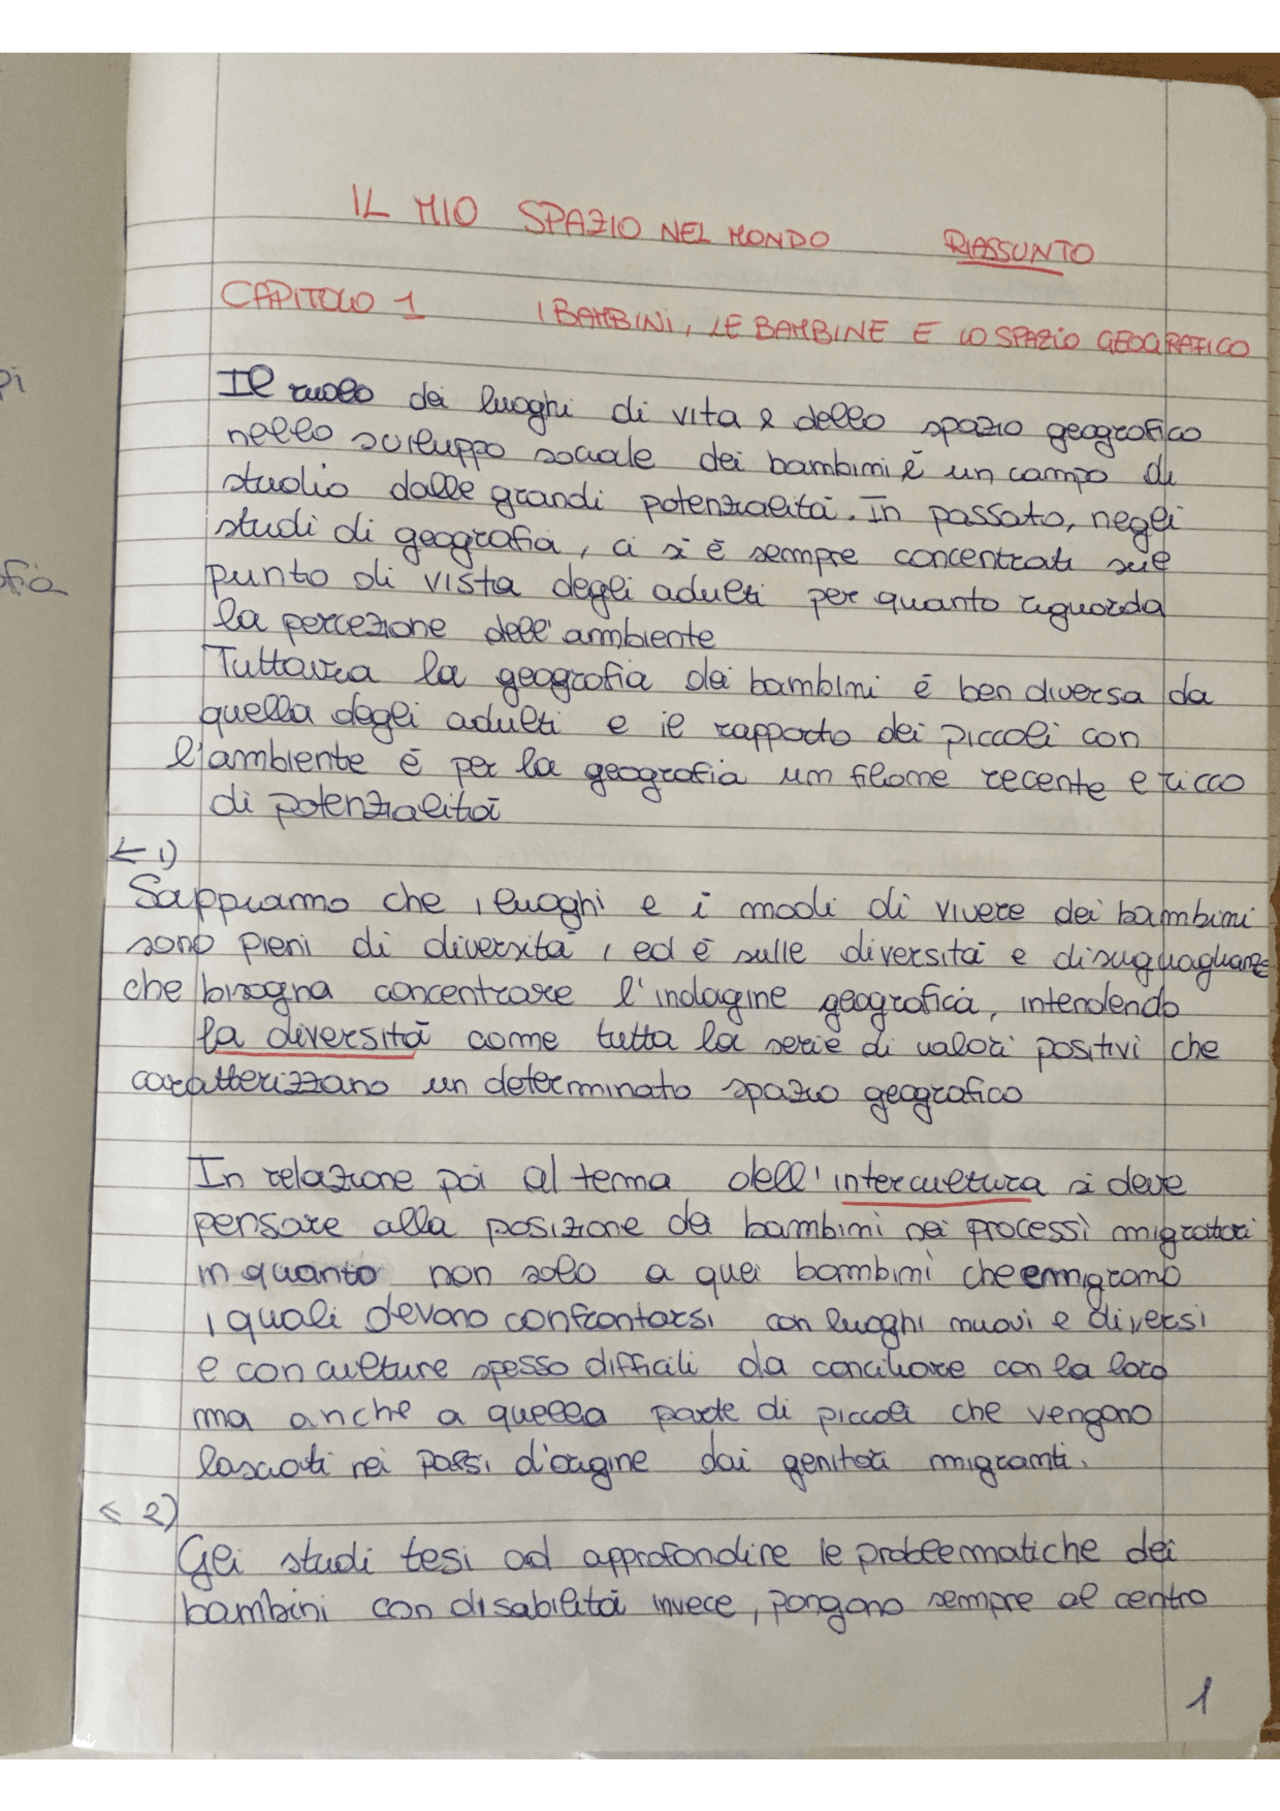 IL MIO SPAZIO NEL MONDO RIASSUNTO
CAPITOLO 1 I BAMBINI, LE BAMBINE E LO SPAZIO GEOGRAFICO
Il ruolo dei luoghi di vita e dello spazio geografico
nello sviluppo sociale dei bambini è un campo di
studio dalle grandi potenzialità. In passato, negli
studi di geografia, ci si è sempre concentrati sul
punto di vista degli adulti per quanto riguarda
la percezione dell'ambiente
Tuttavia la geografia dei bambini è ben diversa da
quella degli adulti e il rapporto dei piccoli con
l'ambiente è per la geografia un filone recente e ricco
di potenzialità
← 1)
Sappiamo che i luoghi e i modi di vivere dei bambini
sono pieni di diversità, ed è sulle diversità e disuguaglianze
che bisogna concentrare l'indagine geografica, intendendo
la diversità come tutta la serie di valori positivi che
caratterizzano un determinato spazio geografico
In relazione poi al tema dell'intercultura si deve
pensare alla posizione dei bambini nei processi migratori
in quanto non solo a quei bambini che emigrano
i quali devono confrontarsi con luoghi nuovi e diversi
e con culture spesso difficili da conciliare con la loro
ma anche a quella parte di piccoli che vengono
lasciati nei paesi d'origine dai genitori migranti.
← 2)
Gli studi tesi ad approfondire le problematiche dei
bambini con disabilità invece, pongono sempre al centro
1
pi
ofia